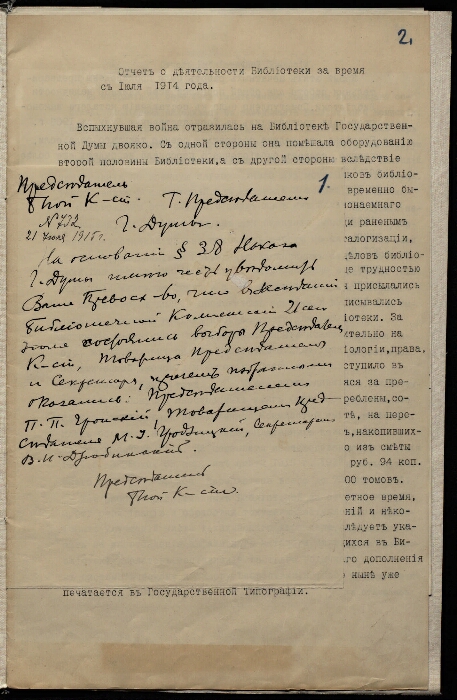 2.
Отчетъ о дѣятельности Библіотеки за время
съ Іюля 1914 года.
Вспыхнувшая война отразилась на Библіотекѣ Государствен-
ной Думы двояко. Съ одной стороны она помѣшала оборудованію
второй половины Библіотеки,а съ другой стороны вслѣдствіе
1.
Председатель
Бной К-сіи.
Г. Председателю
Г. Думы.
№ 732
21 Іюня 1915 г.
На основаніи § 38 Наказа
Г. Думы имѣю честь увѣдомить
Ваше Превосх-во, что въ засѣданіи
Библіотечной Комиссіи 21 сего
Іюня состоялись выборы Председателя
К-сіи, Товарища Председателя
и Секретаря, причемъ избранными
оказались: Председателемъ
П. П. Гронскій, Товарищемъ Пред-
седателя М. І. Гродзицкій, Секретаремъ
В. И.
Председатель
Бной К-сіи
ковъ библіо-
временно бы-
наемнаго
и раненымъ
талогизаціи,
дѣловъ библіо-
ые трудностью
и присылались
писывались
отеки. За
ительно на
іологіи,права,
ступило въ
ся за пре-
реблены,со-
тѣ, на пере-
ъ,накопивших-
о изъ смѣты
руб. 94 коп.
00 томовъ.
етное время,
ній и нѣко-
лѣдуетъ ука-
щихся въ Би-
го дополненія
нынѣ уже
печатается въ Государственной Типографіи.